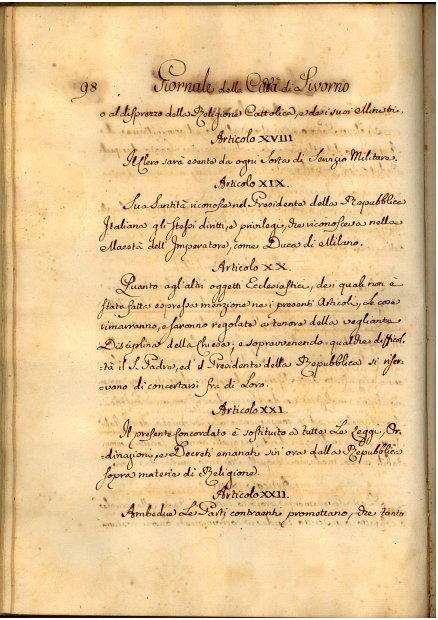 98 Giornale della Città di Livorno
o al disprezzo della Religione Cattolica, e de' suoi Ministri.
Articolo XVIII
Il Clero sarà esente da ogni Sorta di Servizio Militare.
Articolo XIX.
Sua Santità riconosce nel Presidente della Repubblica
Italiana gli stessi diritti, e privilegi, che riconosceva nella
Maestà dell'Imperatore, come Duca di Milano.
Articolo XX.
Quanto agl'altri oggetti Ecclesiastici, de i quali non è
stata fatta espressa menzione ne i presenti Articoli, Le cose
rimarranno, e saranno regolate a tenore della vegliante
Disciplina della Chiesa; e sopravvenendo qualche difficol-
-tà il S. Padre, ed il Presidente della Repubblica si riser-
-vano di concertarsi fra di Loro.
Articolo XXI.
Il presente Concordato è sostituito a tutte Le Leggi, Or-
-dinazioni, e Decreti emanati sin'ora dalla Repubblica
sopra materia di Religione.
Articolo XXII.
Ambedue Le Parti contraenti promettono, che tanto